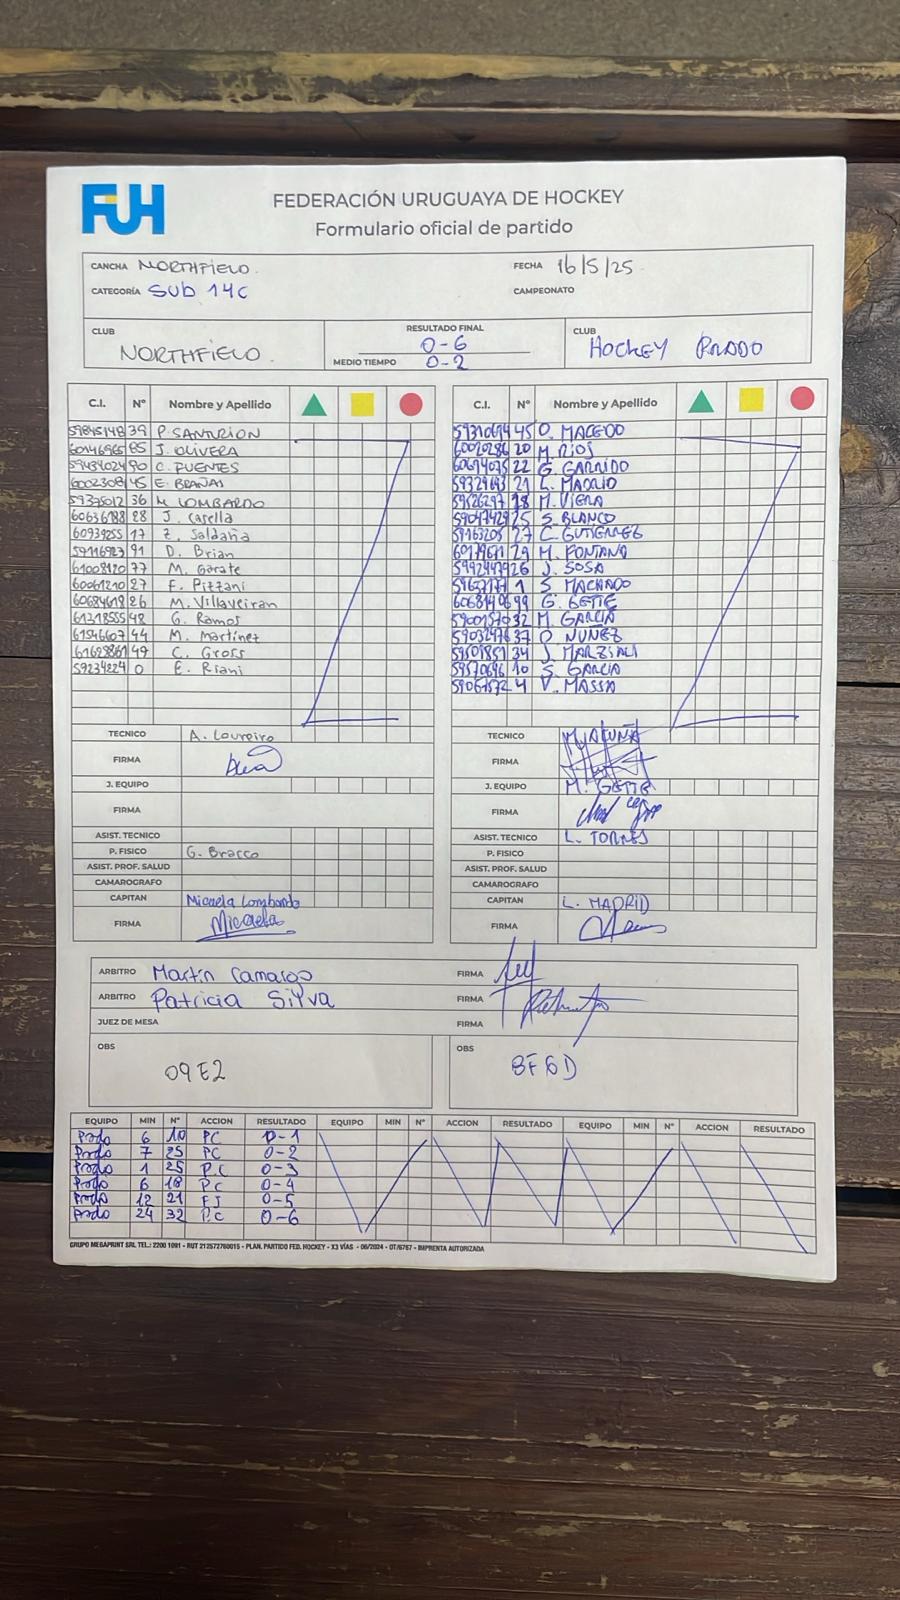 FUH
FEDERACIÓN URUGUAYA DE HOCKEY
Formulario oficial de partido
CANCHA NORTHFIELD.
FECHA 16/5/25
CATEGORÍA SUB 14C
CAMPEONATO
CLUB NORTHFIELD.
RESULTADO FINAL
0-6
MEDIO TIEMPO 0-2
CLUB HOCKEY PRADO
C.I. Nº Nombre y Apellido
59845148 39 P. SANTURION
60146965 85 J. OLIVERA
59434024 90 C. FUENTES
6002308 45 E. BRAÑAS
59375012 36 M. LOMBARDO
60636188 28 J. Casella
60939255 17 Z. Saldaña
59116927 91 D. Brian
61008120 77 M. Garate
60061210 27 F. Pizzani
60684618 26 M. Villaveiran
61318555 48 G. Ramos
61546607 44 M. Martinez
61623861 49 C. Gross
59234224 0 E. Riani
TECNICO A. Loureiro
FIRMA
J. EQUIPO
FIRMA
ASIST. TECNICO
P. FISICO G. Bracco
ASIST. PROF. SALUD
CAMAROGRAFO
CAPITAN Micaela Lombardo
FIRMA Micaela
C.I. Nº Nombre y Apellido
45 O. MACEDO
60020286 20 M. RIOS
22 G. GARRIDO
59329693 21 L. MADRID
59526297 18 M. VIERA
25 S. BLANCO
59163205 27 C. GUTIERREZ
29 M. FONTANA
26 J. SOSA
1 S. MACHADO
99 G. GETTE
32 M. GARCÍA
37 O NUÑEZ
34 J. MARZIALI
59570696 10 S. GARCIA
4 V. MASSA
TECNICO M. ACUÑA
FIRMA
J. EQUIPO M. GETTE
FIRMA
ASIST. TECNICO L. TORRES
P. FISICO
ASIST. PROF. SALUD
CAMAROGRAFO
CAPITAN L. MADRID
FIRMA
ARBITRO Martín Camargo FIRMA
ARBITRO Patricia Silva FIRMA
JUEZ DE MESA FIRMA
OBS 09E2
OBS 8F6D
EQUIPO MIN Nº ACCION RESULTADO EQUIPO MIN Nº ACCION RESULTADO EQUIPO MIN Nº ACCION RESULTADO
Prado 6 10 PC 0-1
Prado 7 25 PC 0-2
Prado 1 25 P.C 0-3
Prado 6 18 P.C 0-4
Prado 12 21 FJ 0-5
Prado 24 32 P.C 0-6
GRUPO MEGAPRINT SRL TEL.: 2200 1091 - RUT 212572760015 - PLAN. PARTIDO FED. HOCKEY - X3 VÍAS - 06/2024 - OT/6767 - IMPRENTA AUTORIZADA